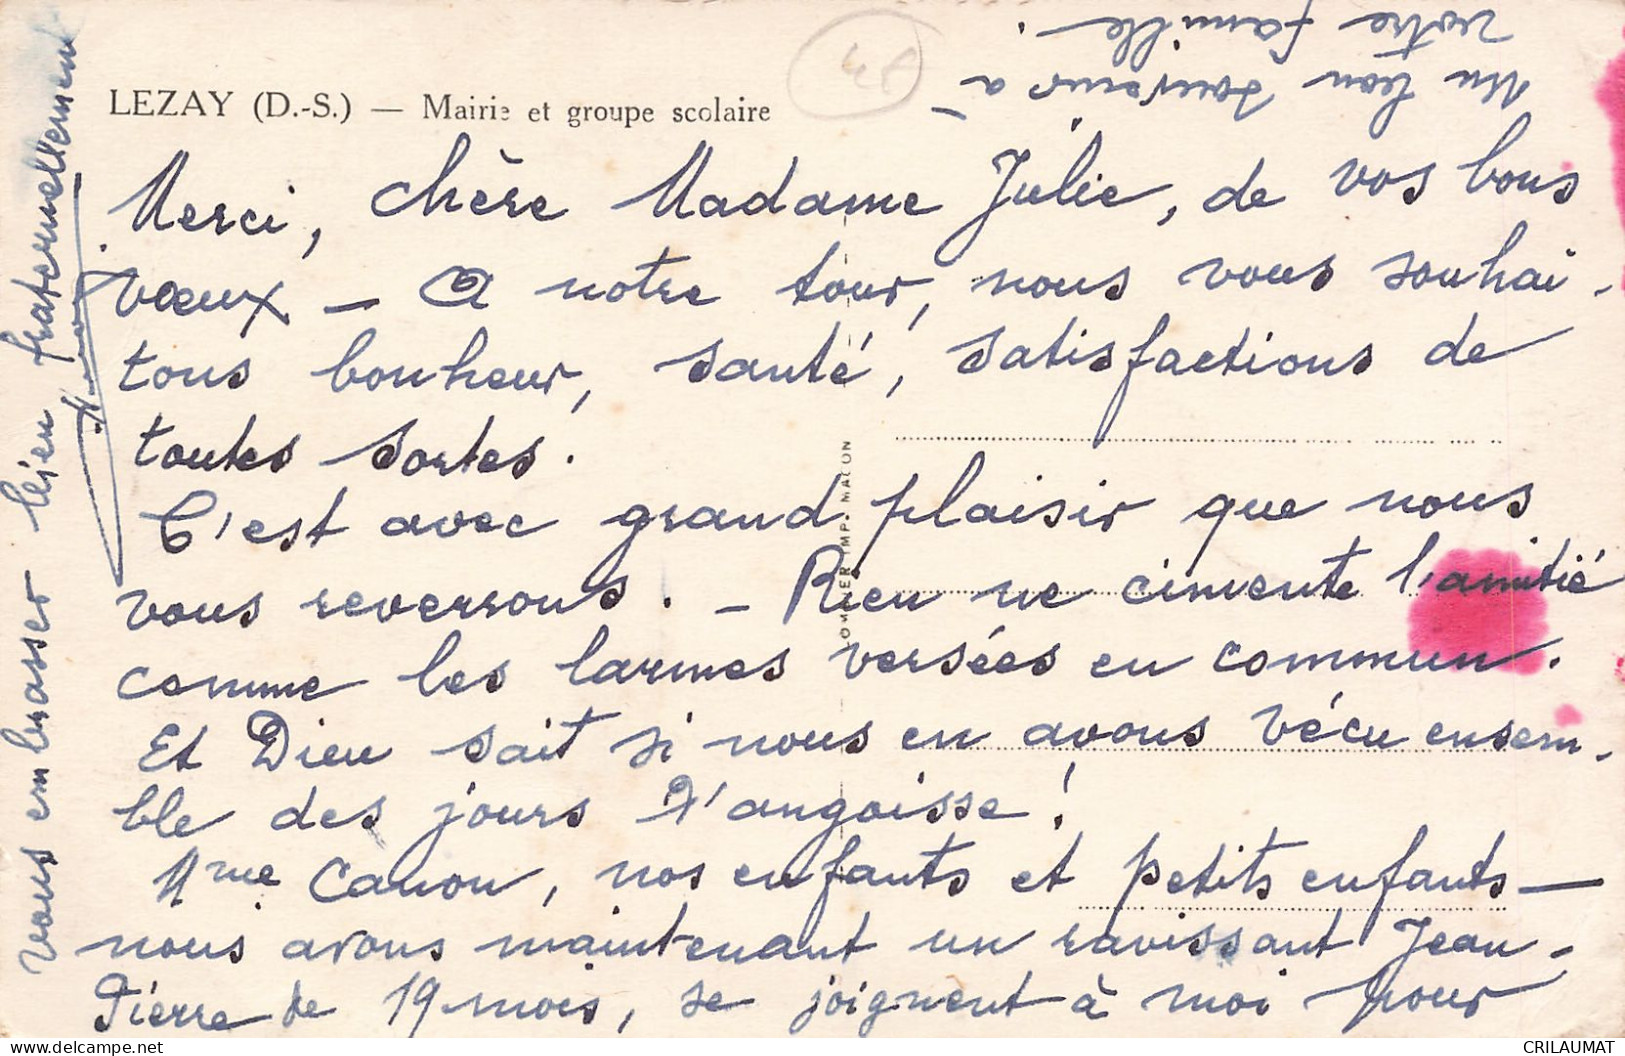 LEZAY (D.-S.) — Mairie et groupe scolaire
Merci, chère Madame Julie, de vos bons
vœux _ A notre tour, nous vous souhai-
tons bonheur, santé, satisfactions de
toutes sortes.
C'est avec grand plaisir que nous
vous reverrons. _ Rien ne cimente l'amitié
comme les larmes versées en commun.
Et Dieu sait si nous en avons vécu ensem-
ble des jours d'angoisse !
Mme Canon, nos enfants et petits enfants —
nous avons maintenant un ravissant Jean-
Pierre de 19 mois, se joignent à moi pour
vous embrasser bien fraternellement
Un bon souvenir à
votre famille.
IMP. MACON
delcampe.net
CRILAUMAT